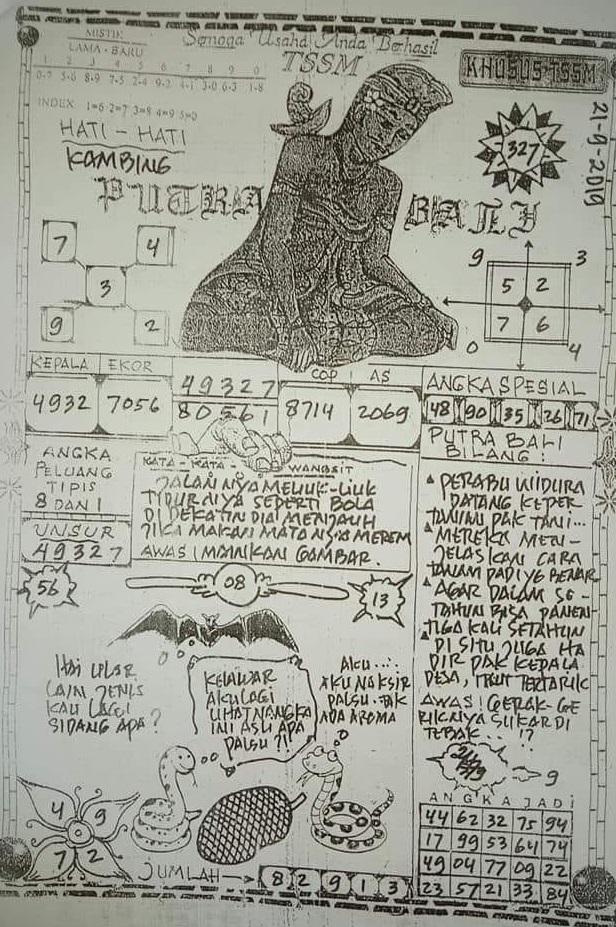 MISTIK
LAMA - BARU
1 2 3 4 5 6 7 8 9 0
0-7 5-6 8-9 7-5 2-4 9-2 4-1 3-0 6-3 1-8
INDEX 1=6 2=7 3=8 4=9 5=0
Semoga Usaha Anda Berhasil
TSSM
KHUSUS TSSM
21-9-2019
HATI - HATI
KAMBING
327
PUTRA BALI
7 4
3
9 2
9 3
5 2
7 6
0 4
KEPALA EKOR
4932 7056
49327
80561
COP AS
8714 2069
ANGKA SPESIAL
48 90 35 26 71
ANGKA
PELUANG
TIPIS
8 DAN 1
UNSUR
49327
KATA - KATA - WANGSIT
JALANNYA MELIUK-LIUK
TIDURNYA SEPERTI BOLA
DI DEKATIN DIA MENJAUH
JIKA MAKAN MATANYA MEREM
AWAS! MAINKAN GAMBAR.
PUTRA BALI
BILANG:
PERABU WIDURA
DATANG KEPER
TANIAN PAK TANI...
MEREKA MEN-
JELASKAN CARA
TANAM PADI YG BENAR
AGAR DALAM SE-
TAHUN BISA PANEN
TIGA KALI SETAHUN
DI SITU JUGA HA
DIR PAK KEPALA
DESA, IKUT TERTARIK
AWAS! GERAK-GE
RIKNYA SUKAR DI
TEBAK...!?
56
08
13
HAI ULAR
LAIN JENIS
KAU LAGI
SIDANG APA?
KELAWAR
AKU LAGI
LIHAT NANGKA
INI ASLI APA
PALSU?!
AKU....
AKU NAKSIR
PALSU. TAK
ADA AROMA
9
4 9
7 2
JUMLAH → 8 2 9 1 3
ANGKA JADI
44 62 32 75 94
17 99 53 64 74
49 04 77 09 22
23 57 21 33 84